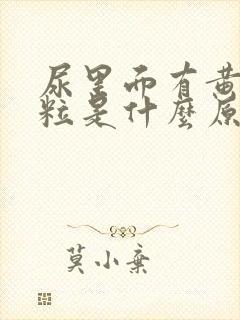 尿里面有黄
粒是什麽原
莫小棄